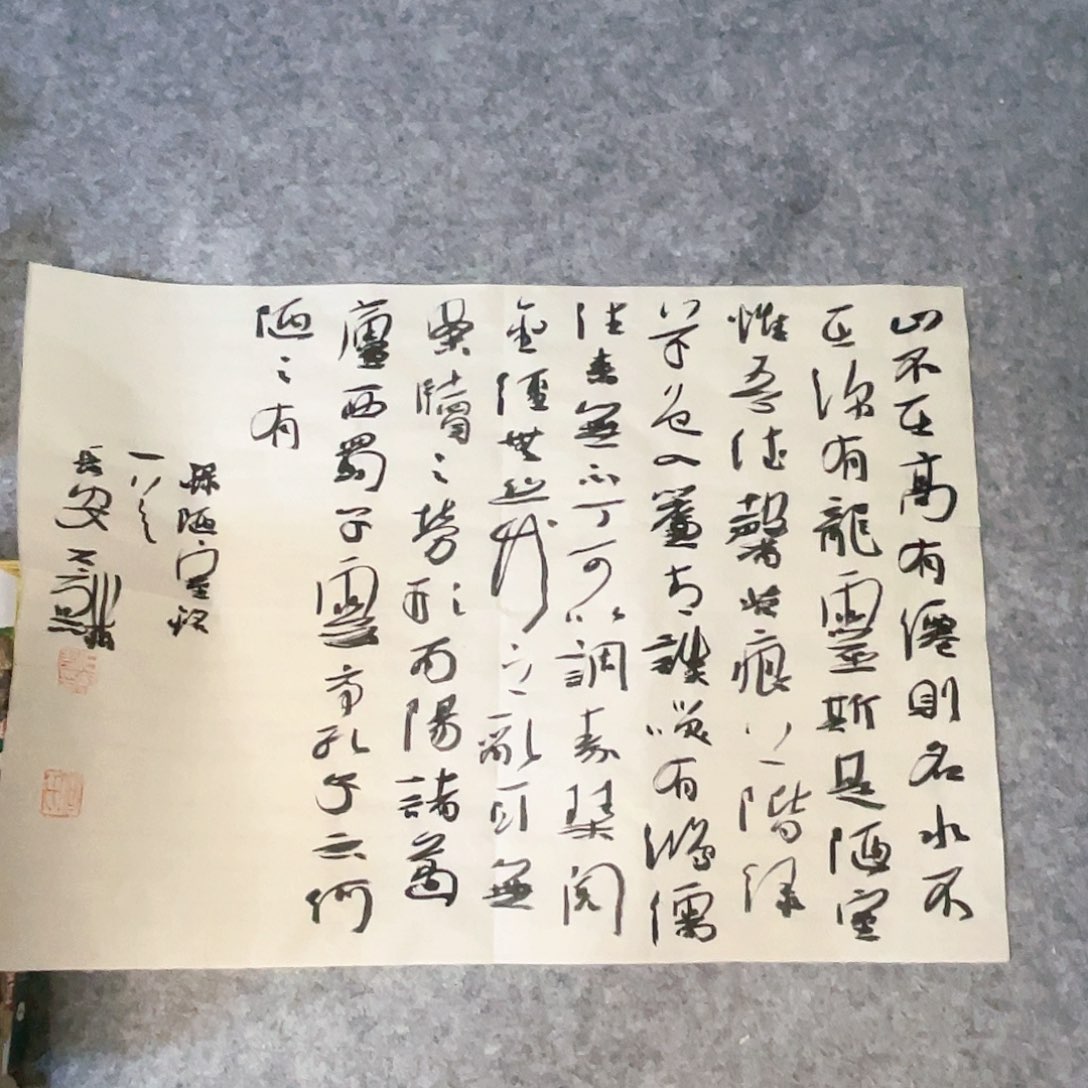 山不在高有僊則名水不
在深有龍靈斯是陋室
惟吾德馨苔痕上階綠
草色入簾青談笑有鴻儒
往来無白丁可以調素琴閱
金經無絲竹之亂耳無
案牘之勞形南陽諸葛
廬西蜀子雲亭孔子云何
陋之有
錄陋室銘
長安